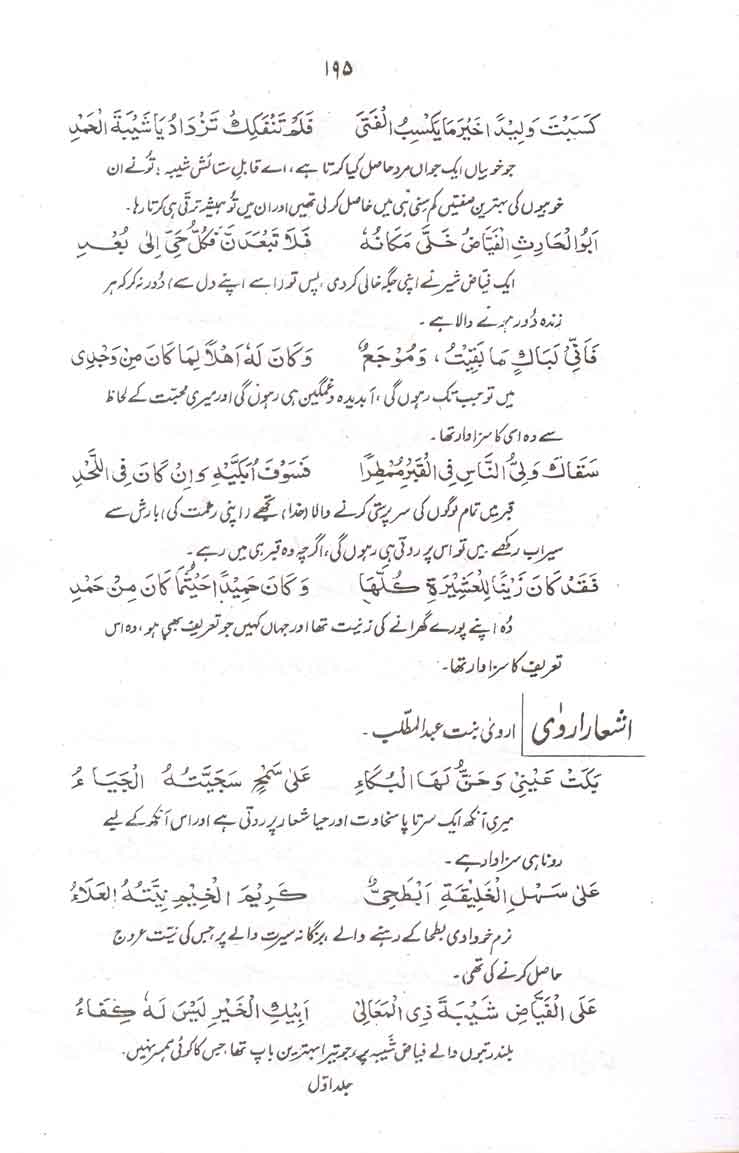 ۱۹۵
كَسَبْتَ وَلِيْدًا خَيْرَ مَا يَكْسِبُ الْفَتَى فَلَمْ تَنْفَكِكْ تَزْدَادُ يَا شَيْبَةَ الْحَمْدِ
جو خوبیاں ایک جواں مرد حاصل کیا کرتا ہے، اے قابلِ ستائش شیبہ! تُو نے ان
خوبیوں کی بہترین صفتیں کم سِنی ہی میں حاصل کر لی تھیں اور ان میں تُو ہمیشہ ترقی ہی کرتا رہا۔
اَبُو الْحَارِثِ الْفَيَّاضُ خَلَّى مَكَانَهُ فَلَا تَبْعَدَنْ فَكُلُّ حَيٍّ اِلٰى بُعْدِ
ایک فیاض شیر نے اپنی جگہ خالی کر دی، پس تو (اسے اپنے دل سے) دُور نہ کر کہ ہر
زندہ دُور ہونے والا ہے۔
فَاِنِّيْ لَبَاكٍ مَا بَقِيْتُ، وَمُوْجَعٌ وَكَانَ لَهُ اَهْلًا لِمَا كَانَ مِنْ وَجْدِيْ
میں تو جب تک رہوں گی، آبدیدہ و غمگین ہی رہوں گی اور میری محبت کے لحاظ
سے وہ اسی کا سزاوار تھا۔
سَقَاكَ وَلِيُّ النَّاسِ فِي الْقَبْرِ مُمْطِرًا فَسَوْفَ اُبَكِّيْهِ وَاِنْ كَانَ فِي اللَّحْدِ
قبر میں تمام لوگوں کی سرپرستی کرنے والا (خدا) تجھے (اپنی رحمت کی) بارش سے
سیراب رکھے میں تو اس پر روتی ہی رہوں گی، اگرچہ وہ قبر ہی میں رہے۔
فَقَدْ كَانَ زَيْنًا لِلْعَشِيْرَةِ كُلِّهَا وَكَانَ حَمِيْدًا حَيْثُمَا كَانَ مِنْ حَمْدِ
وُہ اپنے پورے گھرانے کی زینت تھا اور جہاں کہیں جو تعریف بھی ہو، وہ اس
تعریف کا سزاوار تھا۔
اشعار اروٰی اروٰی بنت عبدالمطّلب۔
بَكَتْ عَيْنِيْ وَحُقَّ لَهَا الْبُكَاءِ عَلٰى سَمْحٍ سَجِيَّتُهُ الْحَيَاءُ
میری آنکھ ایک سرتاپا سخاوت اور حیا شعار پر روتی ہے اور اس آنکھ کے لیے
رونا ہی سزاوار ہے۔
عَلٰى سَهْلِ الْخَلِيْقَةِ اَبْطَحِيٍّ كَرِيْمِ الْخِيْمِ نِيَّتُهُ الْعَلَاءُ
نرم خو وادیِ بطحا کے رہنے والے، بزرگانہ سیرت والے پر، جس کی نیت عروج
حاصل کرنے کی تھی۔
عَلَى الْفَيَّاضِ شَيْبَةَ ذِي الْمَعَالِيْ اَبِيْكِ الْخَيْرِ لَيْسَ لَهُ كِفَاءُ
بلند رتبوں والے فیاض شیبہ پر، جو تیرا بہترین باپ تھا، جس کا کوئی ہمسر نہیں۔
جلد اوّل